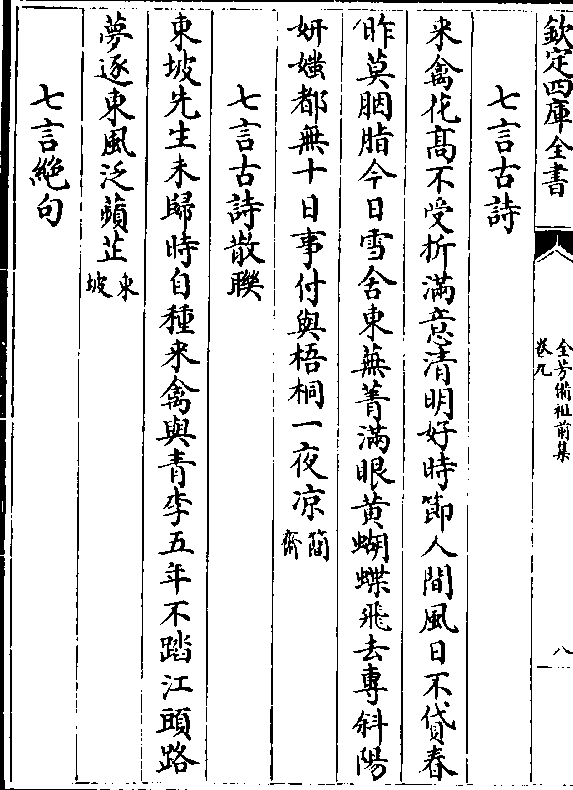 欽定四庫全書
全芳備祖前集
卷九
八
七言古詩
来禽花髙不受折滿意清明好時節人間風日不貸春
昨莫胭脂今日雪舍東蕪菁滿眼黄蝴蝶飛去專斜陽
妍媸都無十日事付與梧桐一夜凉簡齋
七言古詩散聨
東坡先生未歸時自種来禽與青李五年不踏江頭路
夢逐東風泛蘋芷東坡
七言絶句